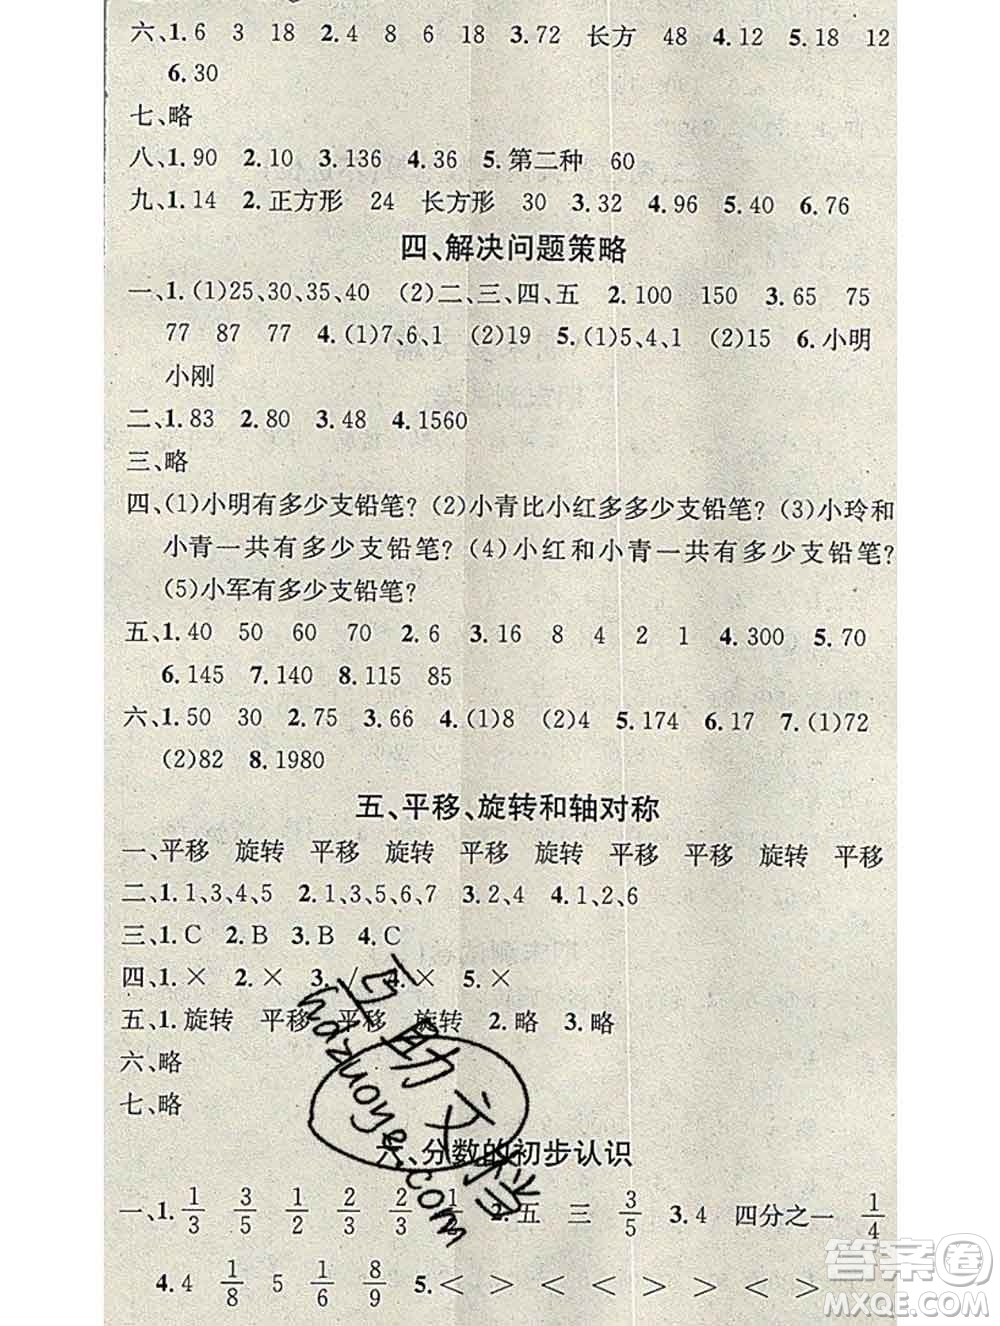 六、1.6 3 18 2.4 8 6 18 3.72 长方 48 4.12 5.18 12
6.30
七、略
八、1.90 2.10 3.136 4.36 5.第二种 60
九、1.14 2.正方形 24 长方形 30 3.32 4.96 5.40 6.76
四、解决问题策略
一、1.(1)25、30、35、40 (2)二、三、四、五 2.100 150 3.65 75
77 87 77 4.(1)7、6、1 (2)19 5.(1)5、4、1 (2)15 6.小明
小刚
二、1.83 2.80 3.48 4.1560
三、略
四、(1)小明有多少支铅笔? (2)小青比小红多多少支铅笔? (3)小玲和
小青一共有多少支铅笔? (4)小红和小青一共有多少支铅笔?
(5)小军有多少支铅笔?
五、1.40 50 60 70 2.6 3.16 8 4 2 1 4.300 5.70
6.145 7.140 8.115 85
六、1.50 30 2.75 3.66 4.(1)8 (2)4 5.174 6.17 7.(1)72
(2)82 8.1980
五、平移、旋转和轴对称
一、平移 旋转 平移 旋转 平移 旋转 平移 平移 旋转 平移
二、1.1、3、4、5 2.1、3、5、6、7 3.2、4 4.1、2、6
三、1.C 2.B 3.B 4.C
四、1.× 2.× 3.√ 4.× 5.×
五、1.旋转 平移 平移 旋转 2.略 3.略
六、略
七、略
六、分数的初步认识
一、1. 1/3 3/5 1/2 2/3 2/3 1/2 2.五 三 3/5 3.4 四分之一 1/4
4.4 1/8 5 1/6 8/9 5.< > < < > > < >
互助文档
hdzuoye.com
答案圈
MXQE.COM